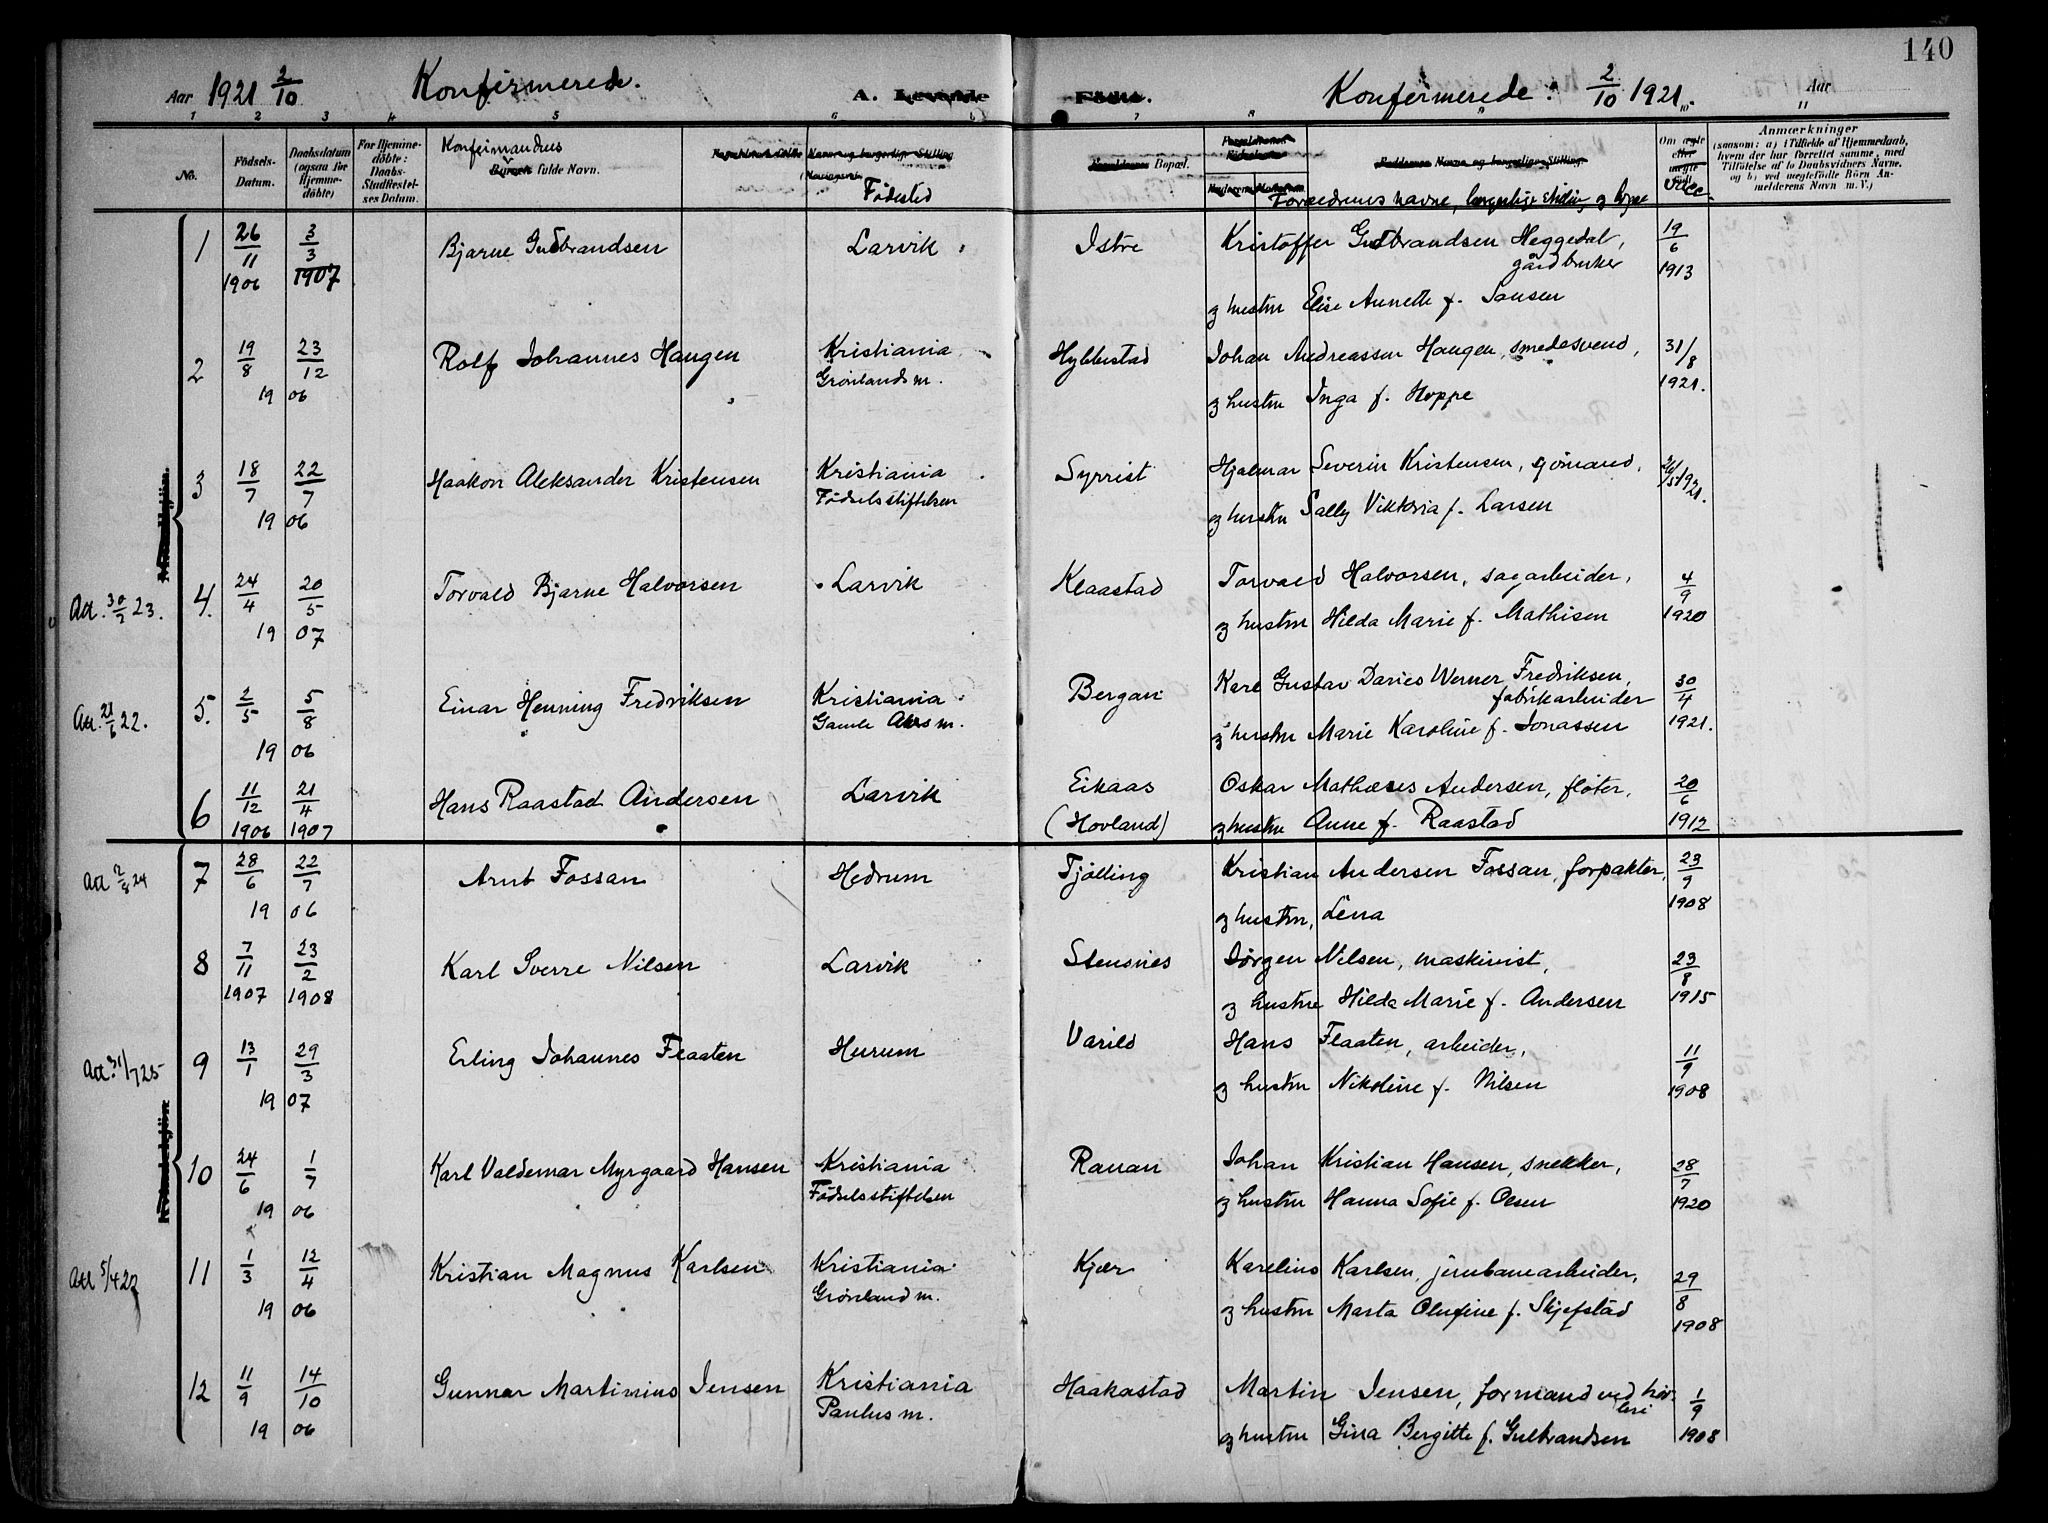 140
Aar 1921 2/10 Konfirmerede. A. Levende
Födte. Konfirmerede. 2/10 1921. Aar
1 2 3 4 5 6 7 8 9 10 11
No.
Födsels-
Datum.
Daabsdatum
(ogsaa for
Hjemme-
döbte)
For Hjemme-
döbte:
Daabs-
Stadfæstel-
ses Datum.
Konfirmandens
Barnets fulde Navn.
Födested
Forældrenes Bopæl.
Faddernes Navne og borgerlige Stilling.
Forældrenes navne, borgerlige stilling og bopæl
Om ægte
eller
uægte
født
Vacc.
Anmærkninger
(saasom: a) i Tilfælde af Hjemmedaab,
hvem der har forrettet samme, med
Tilföielse af to Daabsvidners Navne.
og b) ved uegtefödte Börn An-
melderens Navn m. V.)
1 26/11 1906 3/3 1907 Bjarne Gudbrandsen Larvik Istre Kristoffer Gudbrandsen Heggedal, 19/6
gårdbruker 1913
og hustru Elise Annette f. Jansen
2 19/8 23/12 Rolf Johannes Haugen Kristiania Hybbestad Johan Andreassen Haugen, smedesvend, 31/8
19 06 Grönlands m. og hustru Inga f. Hoppe 1921.
3 18/7 22/7 Haakon Aleksander Kristensen Kristiania Syrrist Hjalmar Severin Kristensen, sjömand,
19 06 Födselsstiftelsen og hustru Sally Viktoria f. Larsen 1921.
Att. 30/2 23. 4. 24/4 20/5 Torvald Bjarne Halvorsen Larvik Klaastad Torvald Halvorsen, sagarbeider, 4/9
19 07 og hustru Hilda Marie f. Mathisen 1920
Att. 21/6 22. 5. 2/5 5/8 Einar Henning Fredriksen Kristiania Bergan Karl Gustav Daries Werner Fredriksen, 30/4
fabrikarbeider
19 06 Gamle Akers m. og hustru Marie Karoline f. Jonassen 1921.
6 11/12 1906 21/4 1907 Hans Raastad Andersen Larvik Eikaas Oskar Mathæus Andersen, fløter, 20/6
(Hovland) og hustru Anne f. Raastad 1912
Att 2/8 24 7 28/6 22/7 Arnt Fossan Hedrum Tjølling Kristian Andersen Fossan, forpakter, 23/9
19 06 og hustru, Lena 1908
8 7/11 1907 23/2 1908 Karl Sverre Nilsen Larvik Stensnes Jørgen Nilsen, maskinist, 23/8
og hustru Hilda Marie f. Andersen 1915
Att. 31/7 25 9 13/1 29/3 Erling Johannes Flaaten Hurum Varild Hans Flaaten, arbeider, 11/9
19 07 og hustru Nikoline f. Nilsen 1908
10 24/6 1/7 Karl Valdemar Myrgaard Hansen Kristiania Rauan Johan Kristian Hansen, snekker, 28/7
19 06 Födselsstiftelsen og hustru Hanna Sofie f. Olsen 1920
Att 5/4 22 11 1/3 12/4 Kristian Magnus Karlsen Kristiania Kjær Karelius Karlsen, jernbanearbeider, 29/8
19 06 Grønland m. og hustru Marta Olufine f. Skjefstad 1908
12 11/9 14/10 Gunnar Martinius Jensen Kristiania Haakastad Martin Jensen, formand ved høv- 1/9
leri
19 06 Paulus m. og hustru Gina Bergitte f. Gulbrandsen 1908